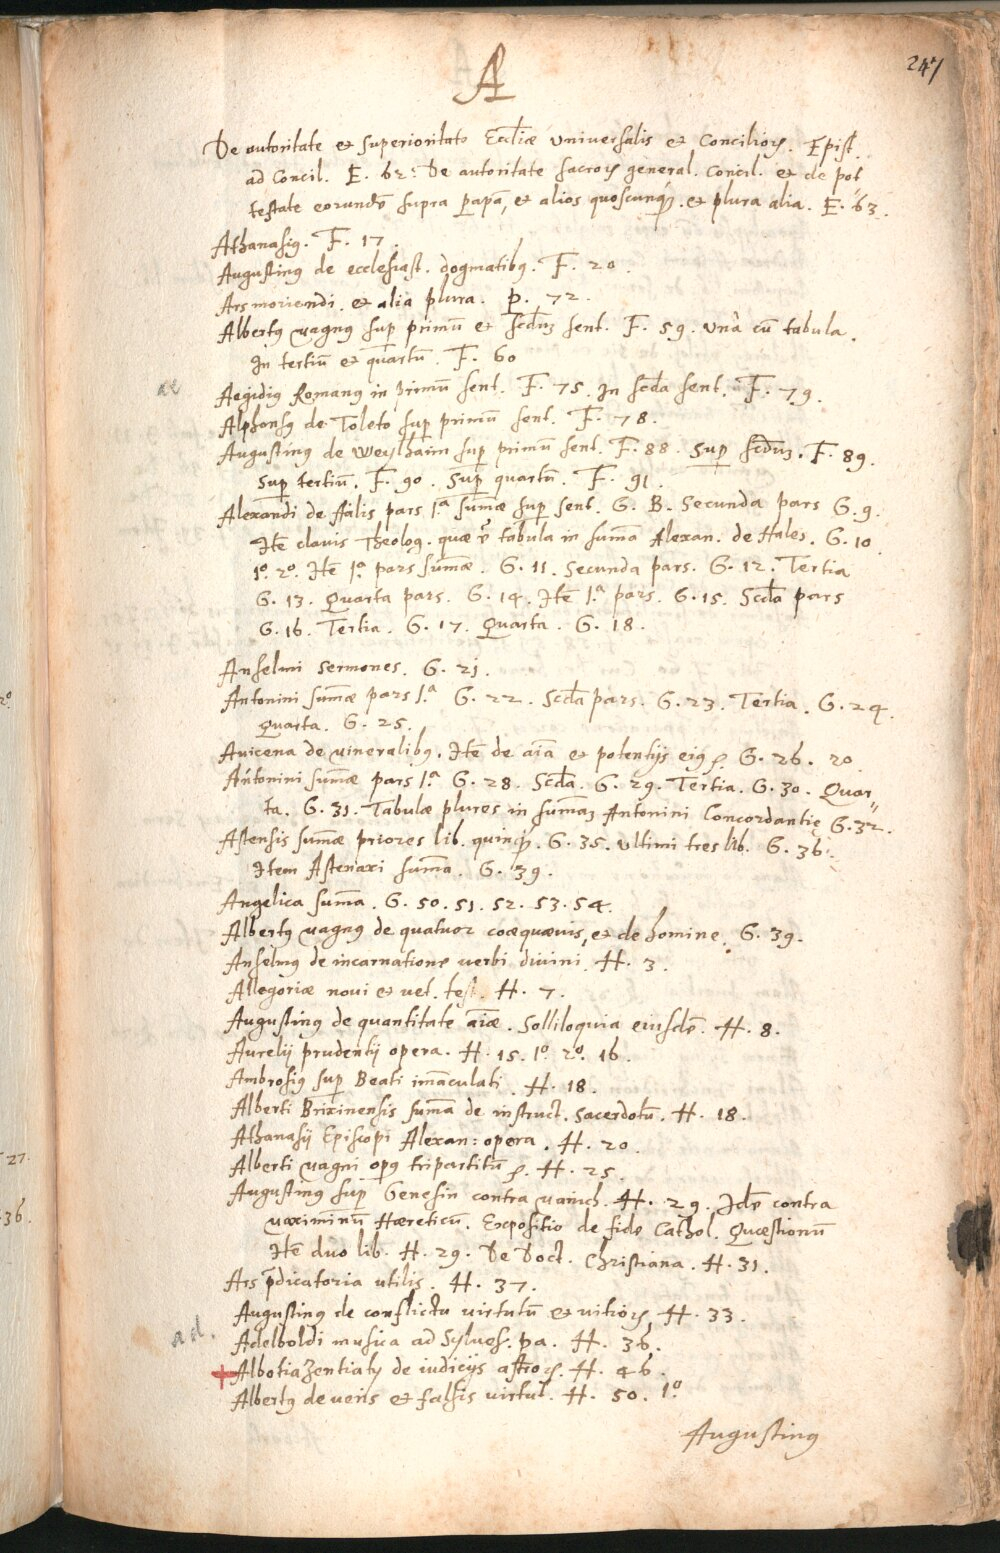 247
A
De autoritate et superioritate Eccl̄iæ universalis et Concilioꝝ. Epist.
ad Concil. E. 62: De autoritate sacroꝝ general. Concil. et de pot
testate eorundē supra Papā, et alios quoscunqꝫ. et plura alia. E. 63.
Athanasiꝯ. F. 17.
Augustinꝯ de ecclesiast. dogmatibꝯ. F. 20.
Ars moriendi. et alia plura. p. 72.
Albertꝯ magnꝯ sup primū et scd̄m sent. F. 59. unà cū tabula.
In tertiū et quartū. F. 60
ae
Aegidiꝯ Romanꝯ in primū sent. F. 75. In scd̄a sent. F. 79.
Alphonsꝯ de Toleto sup primū sent. F. 78.
Augustinꝯ de Weylhaim sup primū sent. F. 88. Sup scd̄m. F. 89.
Sup tertiū. F. 90. Sup quartū. F. 91.
Alexandi de Halis pars 1.ª sum̄æ sup sent. G. 8. Secunda pars G. 9.
Itē clavis Theolog. quæ ē tabula in sum̄a Alexan. de Hales. G. 10
1.º 2.º Itē 1.ª pars sum̄æ. G. 11. Secunda pars. G. 12. Tertia
G. 13. Quarta pars. G. 14. Itē 1.ª pars. G. 15. Scd̄a pars
G. 16. Tertia. G. 17. Quarta. G. 18.
Anselmi Sermones. G. 21.
Antonini sum̄æ pars 1.ª G. 22. Scd̄a pars. G. 23. Tertia. G. 24.
Quarta. G. 25.
Auicena de mineralibꝯ. Itē de aīa et potentijs eiꝯ. G. 26. 20
Antonini sum̄æ pars 1.ª G. 28. Scd̄a. G. 29. Tertia. G. 30. Quar
ta. G. 31. Tabulæ plures in sum̄am Antonini Concordantię G. 32.
Astensis sum̄æ priores lib. quinqꝫ. G. 35. ultimi tres lib. G. 36.
Item Astenaxi sum̄a. G. 39.
Angelica sum̄a. G. 50. 51. 52. 53. 54.
Albertꝯ magnꝯ de quatuor coæquævis, et de homine. G. 39.
Anselmꝯ de incarnatione verbi divini. H. 3.
Allegoriæ novi et vet. test. H. 7.
Augustinꝯ de quantitate aīæ. Solliloquia eiusdē. H. 8.
Aurelij prudentij opera. H. 15. 1.º 2.º 16.
Ambrosiꝯ sup Beati im̄aculati. H. 18.
Alberti Brixinensis sum̄a de instruct. sacerdotū. H. 18.
Athanasij Episcopi Alexan: opera. H. 20.
Alberti magni opꝯ tripartitū. H. 25.
Augustinꝯ sup Genesin contra manich. H. 29. Idē contra
maximinū Hæreticū. Expositio de fide Cathol. Quæstionū
Itē duo lib. H. 29. De Doct. Christiana. H. 31.
Ars p̄dicatoria utilis. H. 37.
Augustinꝯ de conflictu virtutū et vitioꝝ. H. 33.
ad.
Adelboldi musica ad Sylves. pa. H. 36.
+ Albotiazentiatꝯ de iudicijs astroꝝ. H. 46.
Albertꝯ de veris et falsis virtut. H. 50. 1.º
Augustinꝯ
2.º
27.
36.